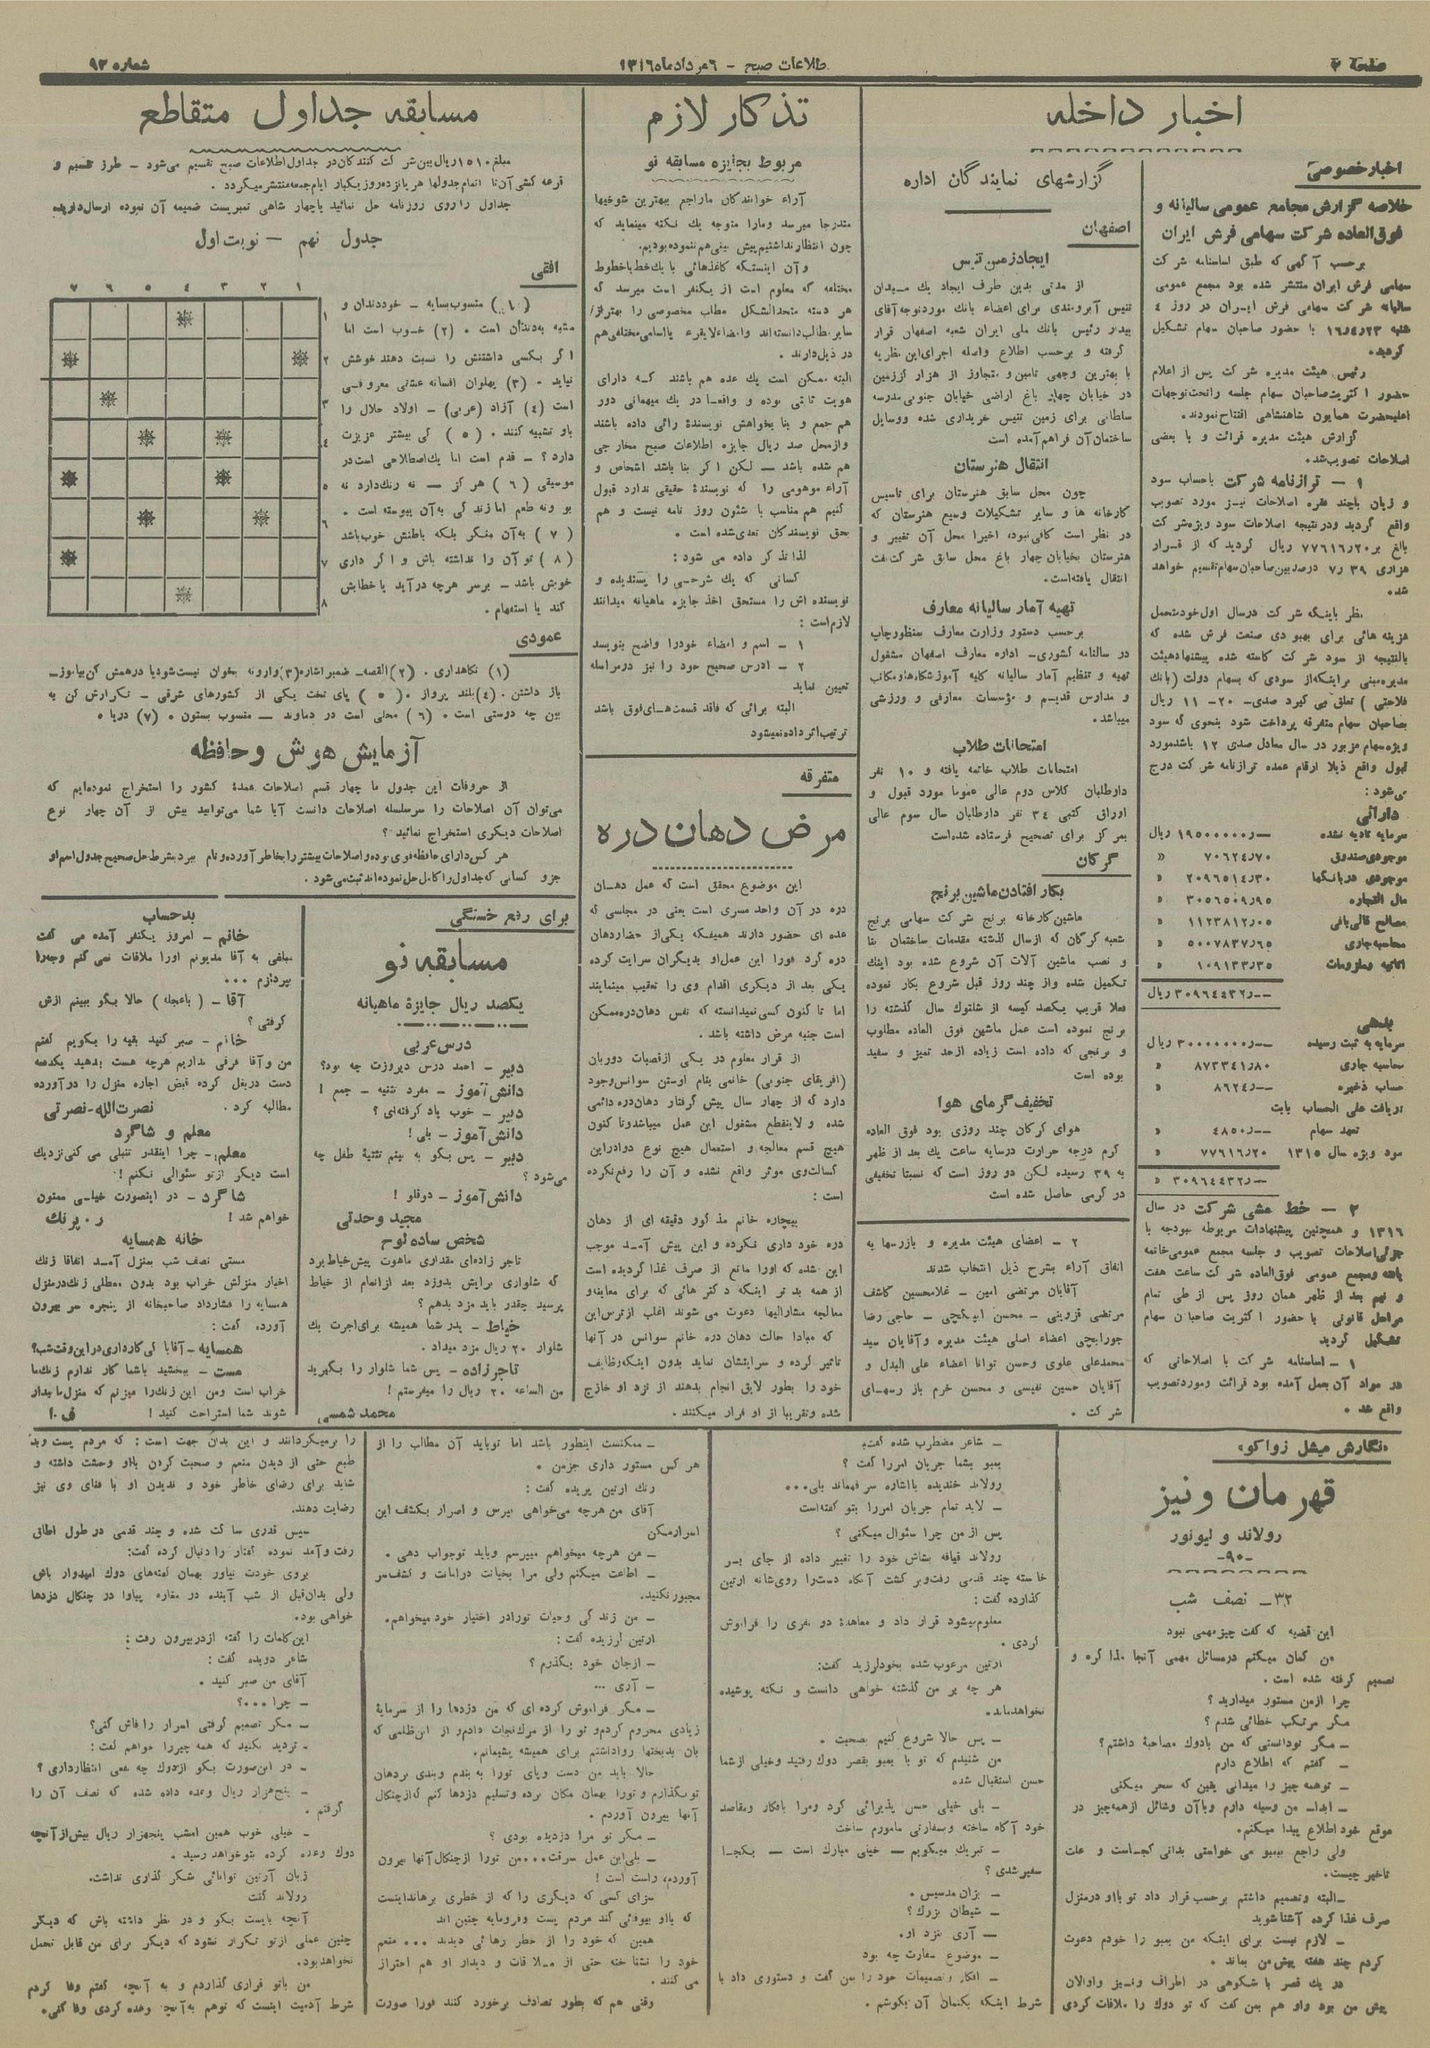 صفحه ۲
اطلاعات صبح - ۶ مرداد ماه ۱۳۱۶
شماره ۹۲
اخبار داخله
اخبار خصوصی
خلاصه گزارش مجامع عمومی سالیانه و
فوق‌العاده شرکت سهامی فرش ایران
برحسب آگهی که طبق اساسنامه شرکت
سهامی فرش ایران منتشر شده بود مجمع عمومی
سالیانه شرکت سهامی فرش ایران در روز ۴
شنبه ۱۶٫۴٫۲۳ با حضور صاحبان سهام تشکیل
گردید.
رئیس هیئت مدیره شرکت پس از اعلام
حضور اکثریت صاحبان سهام جلسه را تحت توجهات
اعلیحضرت همایون شاهنشاهی افتتاح نمودند.
گزارش هیئت مدیره قرائت و با بعضی
اصلاحات تصویب شد.
۱ - ترازنامه شرکت با حساب سود
و زیان با چند فقره اصلاحات نیز مورد تصویب
واقع گردید و در نتیجه اصلاحات سود ویژه شرکت
بالغ بر ۷۷۶۱۶٫۲۰ ریال گردید که از قرار
هزاری ۳۹ ر ۷ درصد بین صاحبان سهام تقسیم خواهد
شد.
نظر باینکه شرکت در سال اول خود متحمل
هزینه هائی برای بهبودی صنعت فرش شده که
بالنتیجه از سود شرکت کاسته شده پیشنهاد هیئت
مدیره مبنی براینکه از سودی که بسهام دولت (بانک
فلاحتی) تعلق می گیرد صدی - ۲۰ - ۱۱ ریال
بصاحبان سهام متفرقه پرداخت شود بنحوی که سود
ویژه سهام مزبور در سال معادل صدی ۱۲ باشد مورد
قبول واقع ذیلا ارقام عمده ترازنامه شرکت درج
می‌شود:
دارائی
سرمایه تادیه نشده ۱۹۵۰۰۰۰۰٫-- ریال
موجودی صندوق ۷۰۶۲۴٫۷۰ «
موجودی در بانکها ۲۰۹۶۵۱۴٫۳۰ «
مال التجاره ۳۰۵۶۵۰۹٫۹۵ «
مصالح قالی بافی ۱۱۲۳۸۱۲٫۰۵ «
محاسبه جاری ۵۰۰۷۸۳۷٫۶۵ «
اثاثیه و ملزومات ۱۰۹۱۳۳٫۳۵ «
۳۰۹۶۴۴۳۲٫-- ریال
بدهی
سرمایه به ثبت رسیده ۳۰۰۰۰۰۰۰٫-- ریال
محاسبه جاری ۸۷۳۳۴۱٫۸۰ «
حساب ذخیره ۸۶۲۴٫-- «
دریافت علی الحساب بابت
تعهد سهام ۴۸۵۰٫-- «
سود ویژه سال ۱۳۱۵ ۷۷۶۱۶٫۲۰ «
۳۰۹۶۴۴۳۲٫-- «
۲ - خط مشی شرکت در سال
۱۳۱۶ و همچنین پیشنهادات مربوطه ببودجه با
جزئی اصلاحات تصویب و جلسه مجمع عمومی خاتمه
یافته و مجمع عمومی فوق‌العاده شرکت ساعت هفت
و نیم بعد از ظهر همان روز پس از طی تمام
مراحل قانونی با حضور اکثریت صاحبان سهام
تشکیل گردید
۱ - اساسنامه شرکت با اصلاحاتی که
در مواد آن بعمل آمده بود قرائت و مورد تصویب
واقع شد.
گزارشهای نمایندگان اداره
اصفهان
ایجاد زمین تنیس
از مدتی بدین طرف ایجاد یک میدان
تنیس آبرومندی برای اعضاء بانک مورد توجه آقای
بیدار رئیس بانک ملی ایران شعبه اصفهان قرار
گرفته و برحسب اطلاع واصله اجرای این نظریه
با بهترین وجهی تامین و متجاوز از هزار گز زمین
در خیابان چهار باغ اراضی خیابان جنوبی مدرسه
سلطانی برای زمین تنیس خریداری شده و وسایل
ساختمان آن فراهم آمده است
انتقال هنرستان
چون محل سابق هنرستان برای تاسیس
کارخانه ها و سایر تشکیلات وسیع هنرستان که
در نظر است کافی نبود، اخیرا محل آن تغییر و
هنرستان بخیابان چهار باغ محل سابق شرکت نفت
انتقال یافته است.
تهیه آمار سالیانه معارف
برحسب دستور وزارت معارف بمنظور چاپ
در سالنامه کشوری - اداره معارف اصفهان مشغول
تهیه و تنظیم آمار سالیانه کلیه آموزشگاه‌ها و مکاتب
و مدارس قدیم و مؤسسات معارفی و ورزشی
میباشد.
امتحانات طلاب
امتحانات طلاب خاتمه یافته و ۱۰ نفر
دارطلبان کلاس دوم عالی عموما مورد قبول و
اوراق کتبی ۳۴ نفر دارطلبان سال سوم عالی
بمرکز برای تصحیح فرستاده شده است
گرگان
بکار افتادن ماشین برنج
ماشین کارخانه برنج شرکت سهامی برنج
شعبه گرگان که از سال گذشته مقدمات ساختمان بنا
و نصب ماشین آلات آن شروع شده بود اینک
تکمیل شده و از چند روز قبل شروع بکار نموده
فعلا قریب یکصد کیسه از شلتوک سال گذشته را
برنج نموده است عمل ماشین فوق العاده مطلوب
و برنجی که داده است زیاده از حد تمیز و سفید
بوده است
تخفیف گرمای هوا
هوای گرگان چند روزی بود فوق العاده
گرم درجه حرارت در سایه ساعت یک بعد از ظهر
به ۳۹ رسیده لکن دو روز است که نسبتا تخفیفی
در گرمی حاصل شده است
۲ - اعضای هیئت مدیره و بازرسها به
اتفاق آراء بشرح ذیل انتخاب شدند
آقایان مرتضی امین - غلامحسین کاشف
مرتضی قزوینی - محسن ایپکچی - حاجی رضا
جورابچی اعضاء اصلی هیئت مدیره و آقایان سید
محمدعلی علوی و حسن توانا اعضاء علی البدل و
آقایان حسین نفیسی و محسن خرم بازرسهای
شرکت.
تذکار لازم
مربوط بجایزه مسابقه نو
آراء خوانندگان ما راجع ببهترین شوخیها
متدرجا میرسد و ما را متوجه یک نکته مینماید که
چون انتظار نداشتیم پیش بینی هم ننموده بودیم.
و آن اینستکه کاغذهائی با یک خط یا خطوط
مختلفه که معلوم است از یکنفر است میرسد که
هر دسته متحدالشکل مطلب مخصوصی را بهتر از
سایر مطالب دانسته‌اند و امضاء لایقرء یا اسامی مختلفی هم
در ذیل دارند.
البته ممکن است یک عده هم باشند که دارای
هویت ثابتی بوده و واقعا در یک میهمانی دور
هم جمع و بنا بخواهش نویسنده رائی داده باشند
و از محل صد ریال جایزه اطلاعات صبح مخارجی
هم شده باشد - لکن اگر بنا باشد اشخاص و
آراء موهومی را که نویسندهٔ حقیقی ندارد قبول
کنیم هم مناسب با شئون روزنامه نیست و هم
بحق نویسندگان تعدی شده است.
لذا تذکر داده می شود:
کسانی که یک شرحی را پسندیده و
نویسنده‌اش را مستحق اخذ جایزه ماهیانه میدانند
لازم است:
۱ - اسم و امضاء خود را واضح بنویسد
۲ - ادرس صحیح خود را نیز در مراسله
تعیین نماید
البته برائی که فاقد قسمت‌های فوق باشد
ترتیب اثر داده نمیشود
متفرقه
مرض دهان دره
این موضوع محقق است که عمل دهان
دره در آن واحد مسری است یعنی در مجلسی که
عده ای حضور دارند همینکه یکی از حضار دهان
دره کرد فورا این عمل او بدیگران سرایت کرده
یکی بعد از دیگری اقدام وی را تعقیب مینمایند
اما تا کنون کسی نمیدانسته که نفس دهان دره ممکن
است جنبه مرض داشته باشد.
از قرار معلوم در یکی از قصبات دوربان
(افریقای جنوبی) خانمی بنام اوستن سوانس وجود
دارد که از چهار سال پیش گرفتار دهان دره دائمی
شده و لاینقطع مشغول این عمل میباشد و تا کنون
هیچ قسم معالجه و استعمال هیچ نوع دوا در این
کسالت وی موثر واقع نشده و آن را رفع نکرده
است:
بیچاره خانم مذکور دقیقه ای از دهان
دره خود داری نکرده و این پیش آمد موجب
این شده که او را مانع از صرف غذا گردیده است
از همه بدتر اینکه دکترهائی که برای معاینه و
معالجه مشارالیها دعوت می شوند اغلب از ترس این
که مبادا حالت دهان دره خانم سوانس در آنها
تاثیر کرده و سرایتشان نماید بدون اینکه وظایف
خود را بطور لایق انجام بدهند از نزد او خارج
شده و تقریبا از او فرار میکنند.
مسابقه جداول متقاطع
مبلغ ۱۵۱۰ ریال بین شرکت کنندگان در جداول اطلاعات صبح تقسیم می‌شود - طرز تقسیم و
قرعه کشی آن تا اتمام جدولها هر پانزده روز یکبار ایام جمعه منتشر میگردد.
جداول را روی روزنامه حل نمائید با چهار شاهی تمبر پست ضمیمه آن نموده ارسال دارید
جدول نهم - نوبت اول
۱ ۲ ۳ ۴ ۵ ۶ ۷
۱
۲
۳
۴
۵
۶
۷
۸
افقی
(۱) منسوب سایه - خود دندان و
مشبه به دندان است. (۲) خوب است اما
اگر بکسی داشتنش را نسبت دهند خوشش
نیاید. (۳) پهلوان افسانه عشقی معروفی
است (۴) آزاد (عربی) - اولاد حلال را
باو تشبیه کنند. (۵) کی بیشتر عزیزت
دارد؟ - قدم است اما یک اصطلاحی است در
موسیقی (۶) هرگز - نه رنگ دارد نه
بو و نه طعم اما زندگی به آن پیوسته است.
(۷) به آن منگر بلکه باطنش خوب باشد
(۸) تو آن را نداشته باش و اگر داری
خوش باشد - برسر هرچه درآید یا خطابش
کند یا استفهام.
عمودی
(۱) نگاهداری. (۲) القصه - ضمیر اشاره (۳) وارونه بخوان نیست شود یا در همش کن بیاموز -
باز داشتن. (۴) بلند پرواز. (۵) پای تخت یکی از کشورهای شرقی - تکرارش کن به
بین چه دوستی است. (۶) محلی است در دماوند - منسوب بستون. (۷) دریا
آزمایش هوش و حافظه
از حروفات این جدول ما چهار قسم اصلاحات عمدهٔ کشور را استخراج نموده‌ایم که
می‌توان آن اصلاحات را سرسلسله اصلاحات دانست آیا شما می‌توانید بیش از آن چهار نوع
اصلاحات دیگری استخراج نمائید؟
هرکس دارای حافظه قوی بوده و اصلاحات بیشتر را بخاطر آورده و نام ببرد بشرط حل صحیح جدول اسم او
جزو کسانی که جداول را کامل حل نموده‌اند ثبت می‌شود.
برای رفع خستگی
مسابقه نو
یکصد ریال جایزهٔ ماهیانه
درس عربی
دبیر - احمد درس دیروزت چه بود؟
دانش آموز - مفرد تثنیه - جمع!
دبیر - خوب یاد گرفته‌ای؟
دانش آموز - بلی!
دبیر - پس بگو به بینم تثنیهٔ طفل چه
می‌شود؟
دانش آموز - دوقلو!
مجید وحدتی
شخص ساده لوح
تاجرزاده‌ای مقداری ماهوت پیش خیاط برد
که شلواری برایش بدوزد بعد از اتمام از خیاط
پرسید چقدر باید مزد بدهم؟
خیاط - پدر شما همیشه برای اجرت یک
شلوار ۲۰ ریال مزد میداد.
تاجرزاده - پس شما شلوار را بگیرید
من الساعه ۲۰ ریال را میفرستم!
محمد شمسی
بدحساب
خانم - امروز یکنفر آمده می گفت
مبلغی به آقا مدیونم او را ملاقات نمی کنم وجه را
بپردازم...
آقا - (با عجله) حالا بگو ببینم ازش
گرفتی؟
خانم - صبر کنید بقیه را بگویم گفتم
من و آقا فرقی نداریم هرچه هست بدهید یکدفعه
دست در بغل کرده قبض اجاره منزل را درآورده
مطالبه کرد.
نصرت‌الله - نصرتی
معلم و شاگرد
معلم - چرا اینقدر تنبلی می کنی نزدیک
است دیگر از تو سئوالی نکنم!
شاگرد - در اینصورت خیلی ممنون
خواهم شد!
ر. پرنک
خانه همسایه
مستی نصف شب بمنزل آمد اتفاقا زنک
اخبار منزلش خراب بود بدون معطلی زنک در منزل
همسایه را فشار داد صاحبخانه از پنجره سر بیرون
آورد، گفت:
همسایه - آقا با کی کار داری در این وقت شب؟
مست - ببخشید باشما کار ندارم زنک ما
خراب است و من این زنک را میزنم که منزل ما بیدار
شوند شما استراحت کنید!
«نگارش میشل زواکو»
قهرمان ونیز
رولاند و لیونور
-۹۰-
۳۲ - نصف شب
این قضیه که گفت چیز مهمی نبود
من گمان میکنم در مسائل مهمی آنجا مذاکره و
تصمیم گرفته شده است.
چرا از من مستور میدارید؟
مگر مرتکب خطائی شدم؟
- مگر تو دانستی که من با دوک مصاحبهٔ داشتم؟
- گفتم که اطلاع دارم
- تو همه چیز را میدانی یقین که سحر میکنی
- ابدا - من وسیله دارم و با آن وسائل از همه چیز در
موقع خود اطلاع پیدا میکنم.
ولی راجع ببمبو می خواستی بدانی کجاست و علت
تاخیر چیست.
- البته و تصمیم داشتم برحسب قرار داد تو با او در منزل
صرف غذا کرده آشنا شوید
- لازم نیست برای اینکه من بمبو را خودم دعوت
کردم چند هفته پیش من بماند.
در یک قصر با شکوهی در اطراف ونیز واو الان
پیش من بود و او هم بمن گفت که تو دوک را ملاقات کردی
- شاعر مضطرب شده گفت:
بمبو بشما جریان امر را گفت؟
رولاند خندیده با اشاره سر فهماند بلی...
- لابد تمام جریان امر را بتو گفته است
پس از من چرا سئوال میکنی؟
رولاند قیافه بشاش خود را تغییر داده از جای بر
خاسته چند قدمی رفت و برگشت آنگاه دست را روی شانه ارتین
گذارده گفت:
معلوم میشود قرار داد و معاهدهٔ دو نفری را فراموش
کردی.
ارتین مرعوب شده بخود لرزید گفت:
هرچه بر من گذشته خواهی دانست و نکته پوشیده
نخواهد ماند.
- پس حالا شروع کنیم بصحبت.
من شنیدم که تو با بمبو بقصر دوک رفتید و خیلی از شما
حسن استقبال شده
- بلی خیلی حسن پذیرائی کرد و مرا بافکار و مقاصد
خود آگاه ساخته و بسفارتی مامورم ساخت
- تبریک میگویم - خیلی مبارک است - بکجا
سفیر شدی؟
- بژان مدسیس.
- شیطان بزرگ؟
- آری نزد او.
- موضوع سفارت چه بود
- افکار و تصمیمات خود را بمن گفت و دستوری داد با
شرط اینکه بکتمان آن بکوشم.
- ممکنست اینطور باشد اما تو باید آن مطالب را از
هرکس مستور داری جز من.
رنک ارتین پریده گفت:
آقای من هرچه می‌خواهی بپرس و اصرار بکشف این
اسرار مکن
- من هرچه میخواهم میپرسم و باید تو جواب دهی.
- اطاعت میکنم ولی مرا بخیانت در امانت و کشف سر
مجبور نکنید.
- من زندگی و حیات تو را در اختیار خود میخواهم.
ارتین لرزیده گفت:
- از جان خود بگذرم؟
- آری...
- مگر فراموش کرده ای که من دزدها را از سرمایهٔ
زیادی محروم کردم و تو را از مرگ نجات دادم و از این ظلمی که
بآن بدبختها روا داشتم برای همیشه پشیمانم.
حالا باید من دست و پای تو را به بندم و بندی بر دهان
تو بگذارم و تو را بهمان مکان برده و تسلیم دزدها کنم که از چنگال
آنها بیرون آوردم.
- مگر تو مرا دزدیده بودی؟
- بلی این عمل سرقت... من تو را از چنگال آنها بیرون
آوردم، راست است!
سزای کسی که دیگری را که از خطری برهاند اینست
که با او بیوفائی کند مردم پست و فرومایه چنین اند
همین که خود را از خطر رهائی دیدند... منعم
خود را نشناخته حتی از ملاقات و دیدار او هم احتراز
می کنند.
وقتی هم که بطور تصادف برخورد کنند فورا صورت
را برمیگردانند و این بدان جهت است: که مردم پست و بد
طبع حتی از دیدن منعم و صحبت کردن با او وحشت داشته و
شاید برای رضای خاطر خود و ندیدن او با فنای وی نیز
رضایت دهند.
سپس قدری ساکت شده و چند قدمی در طول اطاق
رفت و آمد نموده گفتار را دنبال کرده گفت:
بروی خودت نیاور بهمان گفته‌های دوک امیدوار باش
ولی بدان قبل از شب آینده در مغاره پیاوا در چنگال دزدها
خواهی بود.
این کلمات را گفته از در بیرون رفت:
شاعر دویده گفت:
آقای من صبر کنید.
- چرا...؟
- مگر تصمیم گرفتی اسرار را فاش کنی؟
- تردید نکنید که همه چیز را خواهم گفت:
- در این صورت بگو از دوک چه نفعی انتظار داری؟
- پنج هزار ریال وعده داده شده که نصف آن را
گرفتم.
- خیلی خوب همین امشب پنجهزار ریال بیش از آنچه
دوک وعده کرده بتو خواهد رسید.
زبان آرتین توانائی شکرگذاری نداشت.
رولاند گفت
آنچه بایست بگو و در نظر داشته باش که دیگر
چنین عملی از تو تکرار نشود که دیگر برای من قابل تحمل
نخواهد بود.
من باتو قراری گذاردم و به آنچه گفتم وفا کردم
شرط آدمیت اینست که تو هم به آنچه وعده کردی وفا کنی.